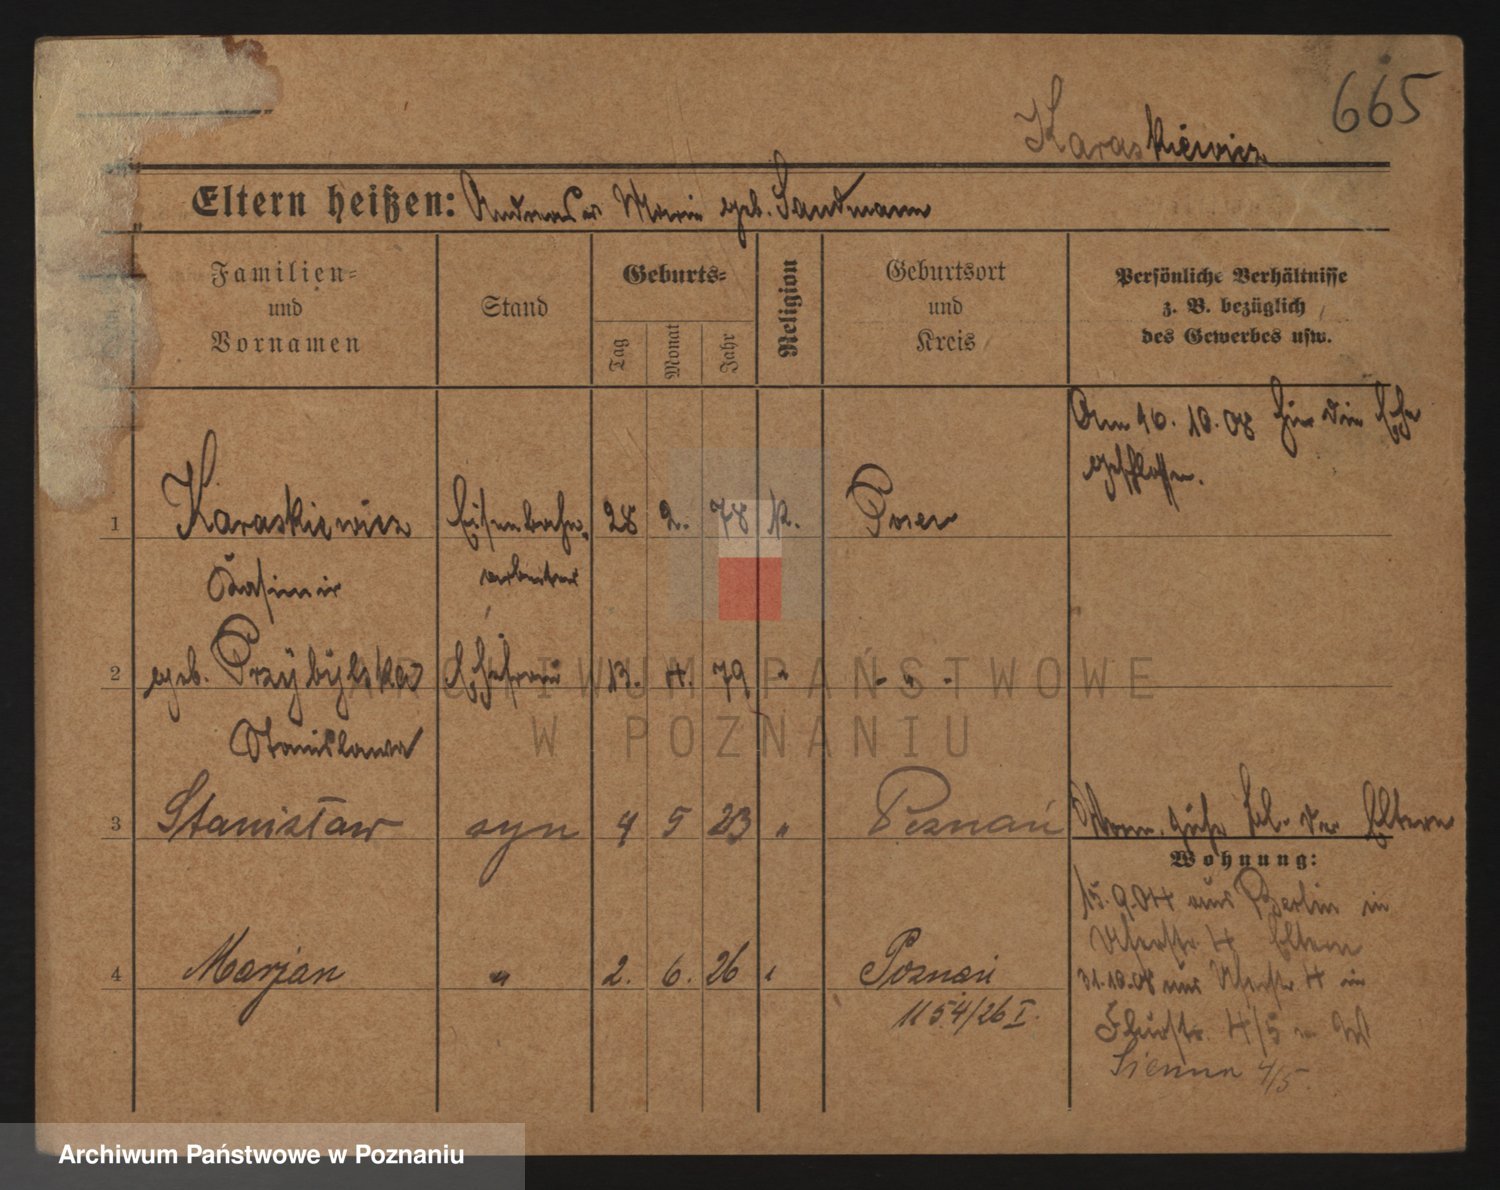 665
Karaskiewicz
Eltern heißen: Andreas u. Marie geb. Sandmann
Familien-
und
Vornamen
Stand
Geburts-
Tag
Monat
Jahr
Religion
Geburtsort
und
Kreis
Persönliche Verhältnisse
z. B. bezüglich
des Gewerbes usw.
Am 10. 10. 08 hier die Ehe
geschlossen.
1 Karaskiewicz Eisenbahn- 28 2. 78 k. Posen
Kasimir arbeiter
2 geb. Przybylska Ehefrau 13. 4. 79 " - " -
Stanislawa
3 Stanisław syn 4 5 23 " Poznań
der Eltern
Wohnung:
15. 9. 04 aus Berlin in
4 Eltern
4 Marjan " 2. 6. 26 " Poznań
1154/26 I.
31. 10. 08 aus 4 in
Flurstr. 4/5
Sienna 4/5.
ARCHIWUM PAŃSTWOWE
W POZNANIU
Archiwum Państwowe w Poznaniu